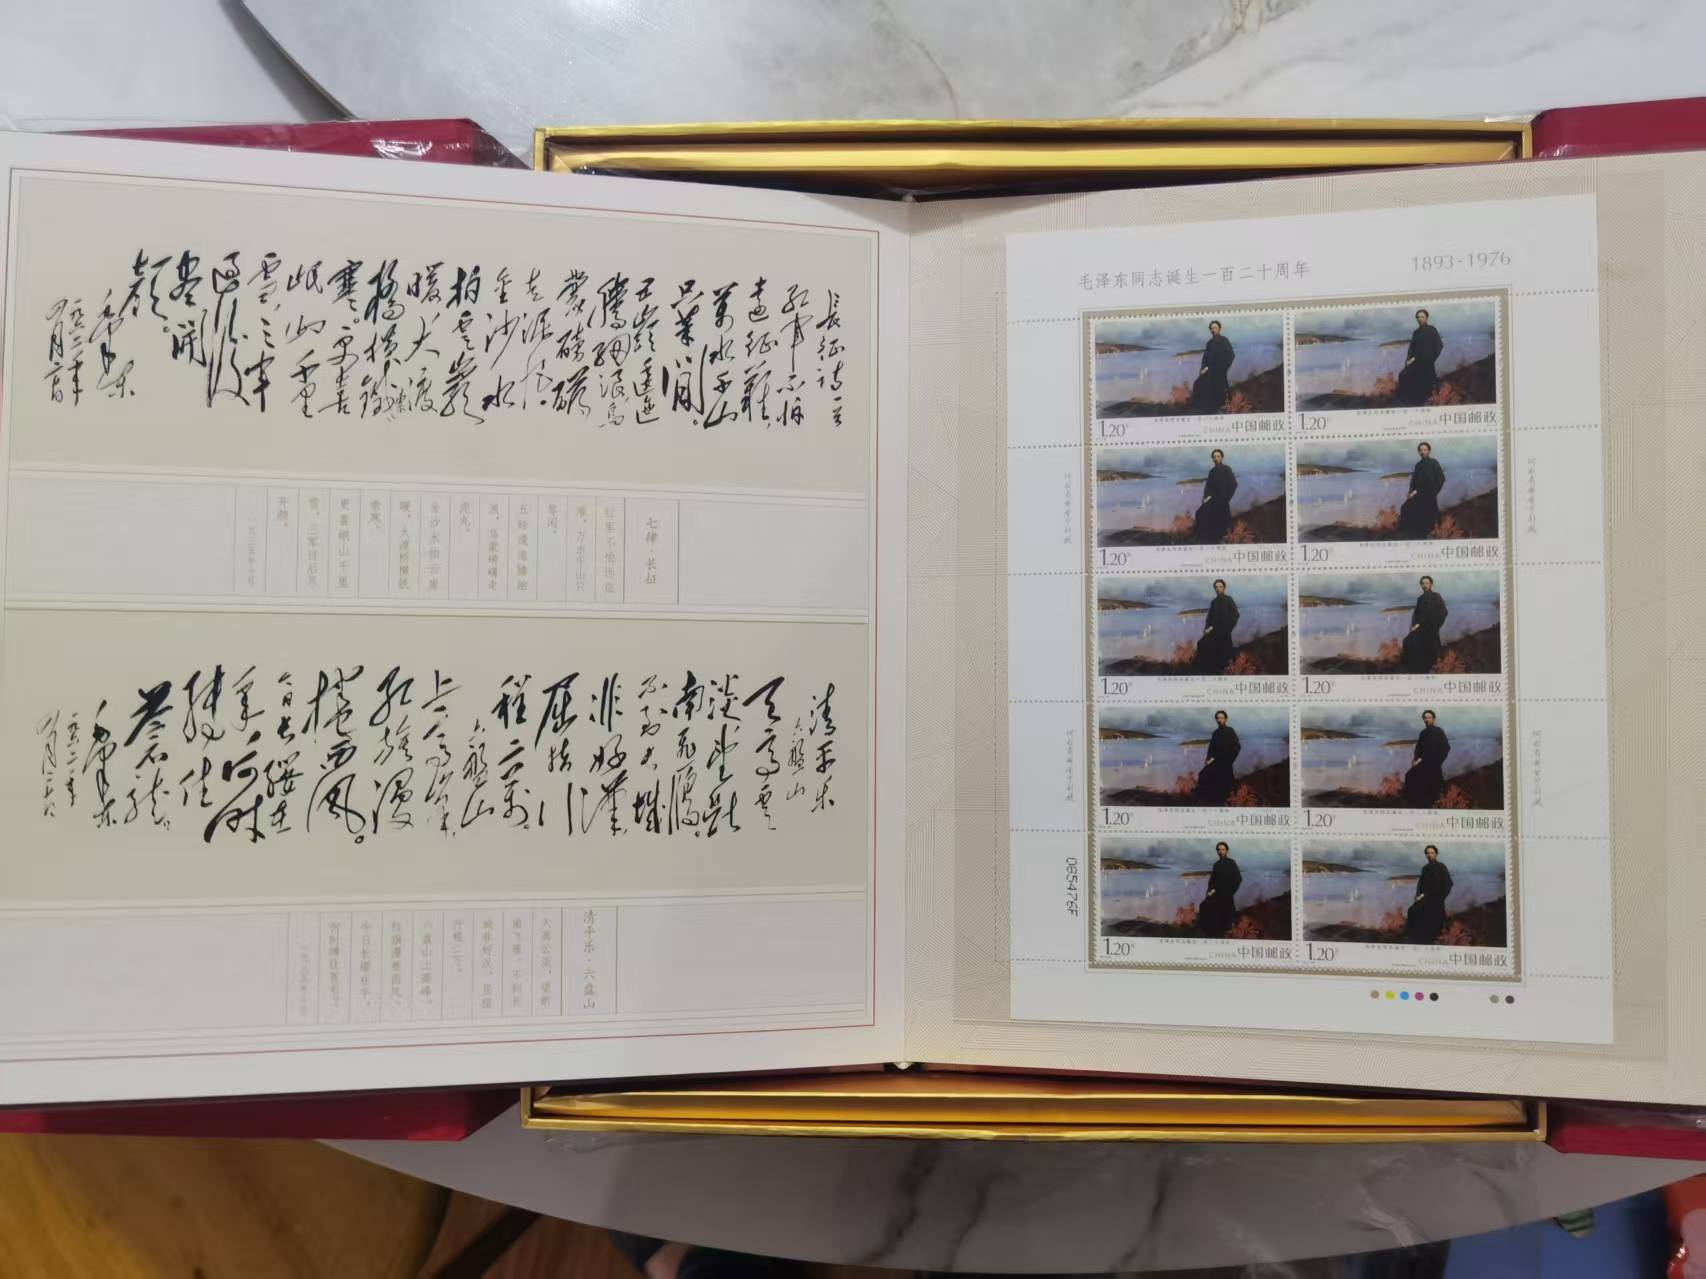 長征詩一首
紅軍不怕
遠征難,
萬水千山
只等閒。
五嶺逶迤
騰細浪,烏
蒙磅礴
走泥丸。
金沙水
拍雲崖
暖,大渡
橋橫鐵索
寒。更喜
岷山千里
雪,三軍
過後
盡開
顏。
毛泽东
一九六二年
七律·长征
红军不怕远征
难,万水千山只
等闲。
五岭逶迤腾细
浪,乌蒙磅礴走
泥丸。
金沙水拍云崖
暖,大渡桥横铁
索寒。
更喜岷山千里
雪,三军过后尽
开颜。
一九三五年十月
清平乐
六盘山
天高雲
淡,望斷
南飛雁。
不到长城
非好漢,
屈指行
程二萬。
六盘山
上高峰,
红旗漫
捲西风。
今日长缨在
手,何时
缚住
苍龙。
毛泽东
清平乐·六盘山
天高云淡,望断
南飞雁。不到长
城非好汉,屈指
行程二万。
六盘山上高峰,
红旗漫卷西风。
今日长缨在手,
何时缚住苍龙?
一九三五年十月
毛泽东同志诞生一百二十周年
1893-1976
1.20元 CHINA 中国邮政
1.20元 CHINA 中国邮政
1.20元 CHINA 中国邮政
1.20元 CHINA 中国邮政
1.20元 CHINA 中国邮政
1.20元 CHINA 中国邮政
1.20元 CHINA 中国邮政
1.20元 CHINA 中国邮政
1.20元 CHINA 中国邮政
1.20元 CHINA 中国邮政
065476F